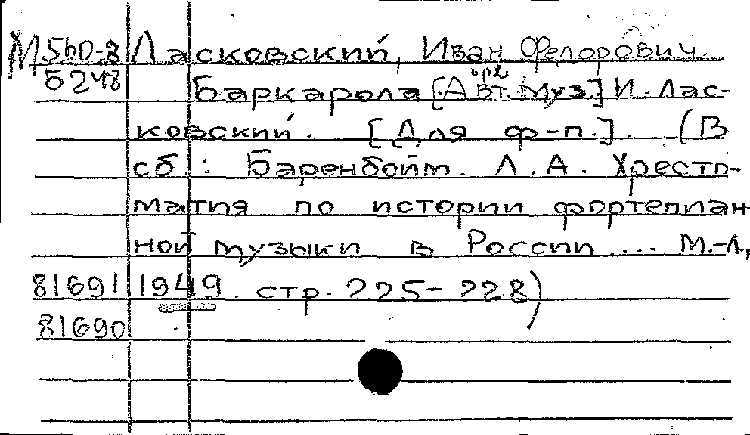 М 560-2 Ласковский, Иван Федорович.
5248 Баркарола [Авт. муз.] И. Лас-
ковский. [Для ф-п.]. (В
сб.: Баренбойм. Л. А. Хресто-
матия по истории фортепиан
ной музыки в России ... М.-Л,
81691 1949. стр. 225-228)
81690